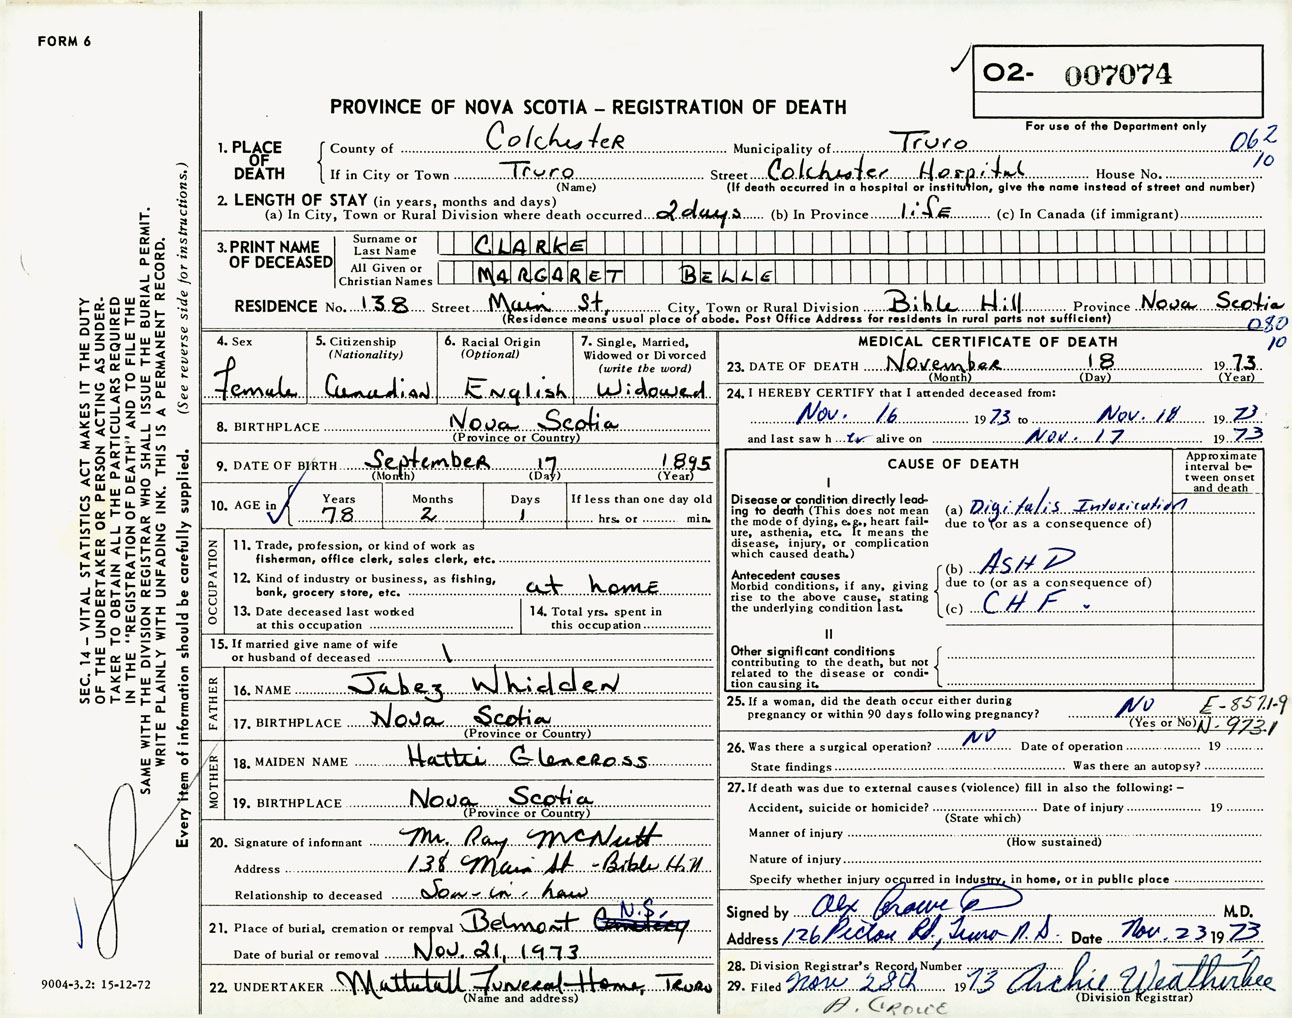 FORM 6
02- 007074
PROVINCE OF NOVA SCOTIA – REGISTRATION OF DEATH
For use of the Department only
062
10
1. PLACE OF DEATH
County of Colchester Municipality of Truro
If in City or Town Truro Street Colchester Hospital House No.
(Name) (If death occurred in a hospital or institution, give the name instead of street and number)
2. LENGTH OF STAY (in years, months and days)
(a) In City, Town or Rural Division where death occurred 2 days (b) In Province life (c) In Canada (if immigrant)
3. PRINT NAME OF DECEASED
Surname or Last Name CLARKE
All Given or Christian Names MARGARET BELLE
RESIDENCE No. 138 Street Main St, City, Town or Rural Division Bible Hill Province Nova Scotia
(Residence means usual place of abode. Post Office Address for residents in rural parts not sufficient)
080
10
4. Sex
Female
5. Citizenship
(Nationality)
Canadian
6. Racial Origin
(Optional)
English
7. Single, Married,
Widowed or Divorced
(write the word)
Widowed
8. BIRTHPLACE Nova Scotia
(Province or Country)
9. DATE OF BIRTH September 17 1895
(Month) (Day) (Year)
10. AGE in
Years Months Days If less than one day old
78 2 1 hrs. or min.
OCCUPATION
11. Trade, profession, or kind of work as
fisherman, office clerk, sales clerk, etc.
12. Kind of industry or business, as fishing,
bank, grocery store, etc. at home
13. Date deceased last worked
at this occupation
14. Total yrs. spent in
this occupation
15. If married give name of wife
or husband of deceased \
FATHER
16. NAME Jabez Whidden
17. BIRTHPLACE Nova Scotia
(Province or Country)
MOTHER
18. MAIDEN NAME Hattie Glencross
19. BIRTHPLACE Nova Scotia
(Province or Country)
20. Signature of informant Mr. Ray McNutt
Address 138 Main St - Bible Hill
Relationship to deceased Son-in-law
21. Place of burial, cremation or removal Belmont Cemetery N.S.
Date of burial or removal Nov. 21, 1973
22. UNDERTAKER Mattatall Funeral Home, Truro
(Name and address)
MEDICAL CERTIFICATE OF DEATH
23. DATE OF DEATH November 18 1973
(Month) (Day) (Year)
24. I HEREBY CERTIFY that I attended deceased from:
Nov. 16 1973 to Nov. 18 1973
and last saw h er alive on Nov. 17 1973
CAUSE OF DEATH
Approximate
interval be-
tween onset
and death
I
Disease or condition directly lead-
ing to death (This does not mean
the mode of dying, e.g., heart fail-
ure, asthenia, etc. It means the
disease, injury, or complication
which caused death.)
(a) Digitalis Intoxication
due to (or as a consequence of)
Antecedent causes
Morbid conditions, if any, giving
rise to the above cause, stating
the underlying condition last.
(b) ASHD
due to (or as a consequence of)
(c) CHF.
II
Other significant conditions
contributing to the death, but not
related to the disease or condi-
tion causing it.
25. If a woman, did the death occur either during
pregnancy or within 90 days following pregnancy? No
(Yes or No)
E-857.1-9
N-973.1
26. Was there a surgical operation? No Date of operation 19
State findings Was there an autopsy?
27. If death was due to external causes (violence) fill in also the following: –
Accident, suicide or homicide? Date of injury 19
(State which)
Manner of injury
(How sustained)
Nature of injury
Specify whether injury occurred in industry, in home, or in public place
Signed by Alex Crowe M.D.
Address 126 Pictou Rd., Truro N.S. Date Nov. 23 1973
28. Division Registrar's Record Number
29. Filed Nov 28th 1973 Archie Weatherbee
(Division Registrar)
A. CROWE
SEC. 14 – VITAL STATISTICS ACT MAKES IT THE DUTY
OF THE UNDERTAKER OR PERSON ACTING AS UNDER-
TAKER TO OBTAIN ALL THE PARTICULARS REQUIRED
IN THE "REGISTRATION OF DEATH" AND TO FILE THE
SAME WITH THE DIVISION REGISTRAR WHO SHALL ISSUE THE BURIAL PERMIT.
WRITE PLAINLY WITH UNFADING INK. THIS IS A PERMANENT RECORD.
Every item of information should be carefully supplied. (See reverse side for instructions.)
9004-3.2: 15-12-72